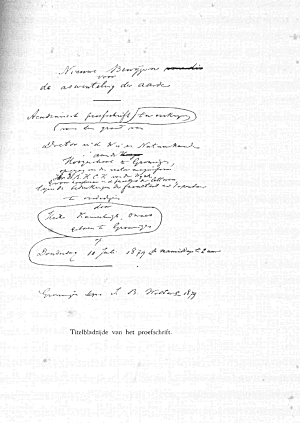 Nieuwe Bewijzen
voor
de aswenteling der aarde
Academisch proefschrift ter verkrijging
van den graad van
Doctor in de Wis en Natuurkunde
aan de
Hoogeschool te Groningen,
op gezag van den rector magnificus
tegen de bedenkingen der faculteit
te verdedigen
door
Heike Kamerlingh Onnes
geboren te Groningen
op
Donderdag 10 Juli 1879 de namiddags te 2 uur
Groningen J. B. Wolters 1879
Titelbladzijde van het proefschrift.